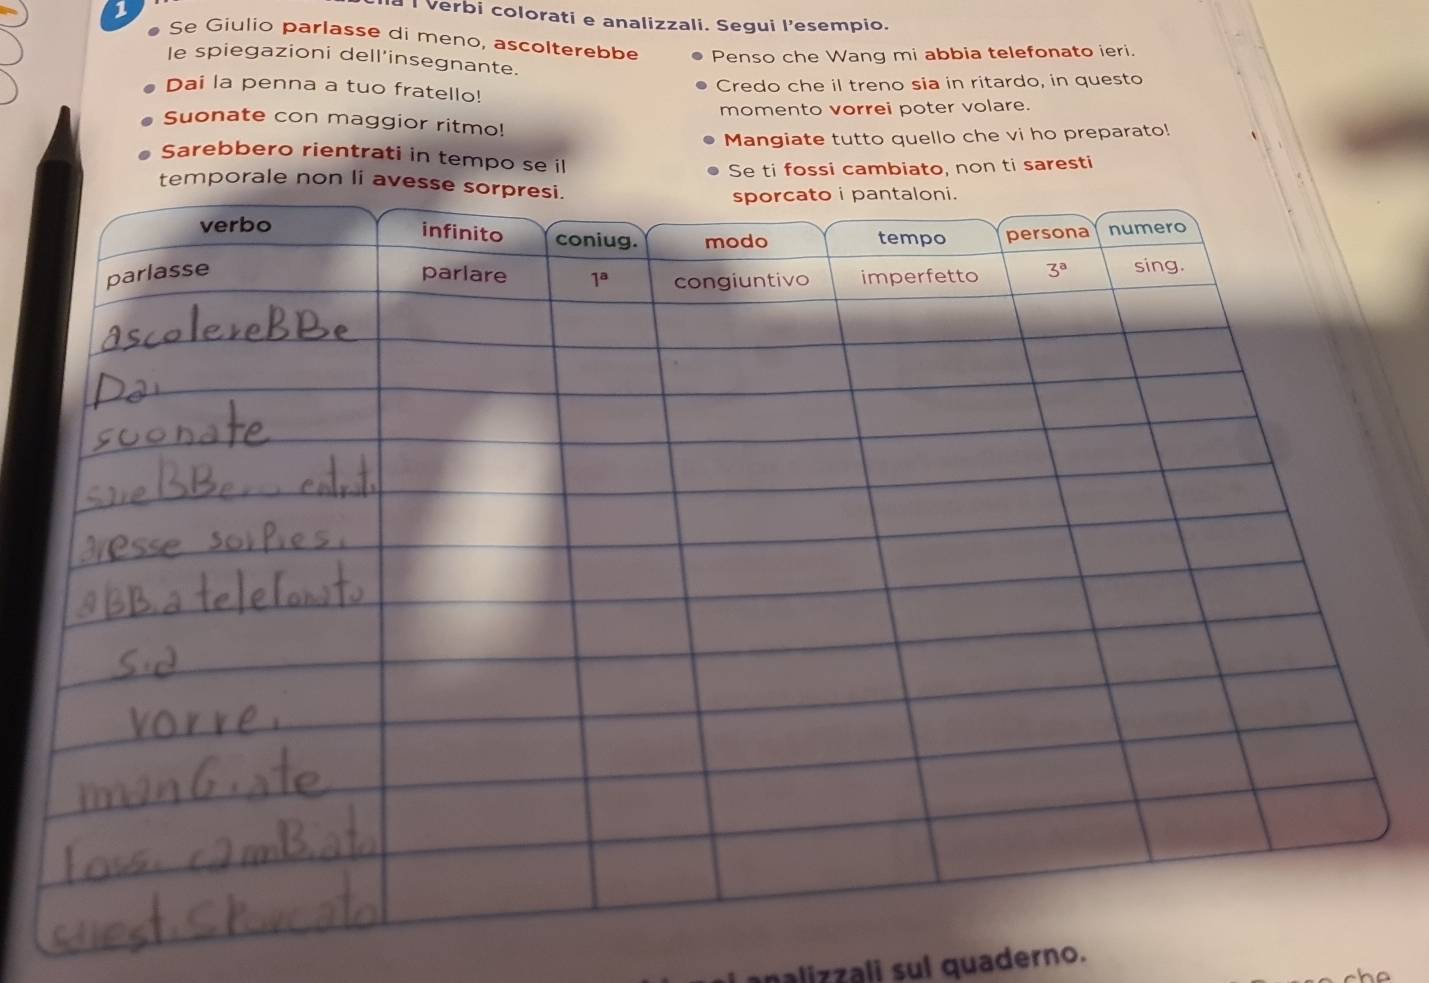 1
i verbi colorati e analizzali. Segui l'esempio.
• Se Giulio parlasse di meno, ascolterebbe
le spiegazioni dell'insegnante.
• Dai la penna a tuo fratello!
• Suonate con maggior ritmo!
• Sarebbero rientrati in tempo se il
temporale non li avesse sorpresi.
• Penso che Wang mi abbia telefonato ieri.
• Credo che il treno sia in ritardo, in questo
momento vorrei poter volare.
• Mangiate tutto quello che vi ho preparato!
• Se ti fossi cambiato, non ti saresti
sporcato i pantaloni.
verbo infinito coniug. modo tempo persona numero
parlasse parlare 1ª congiuntivo imperfetto 3ª sing.
ascolereBBe
Dai
suonate
avesse sorpresi
aBBia telefonato
sia
vorrei
manGiate
fossi camBiato
analizzali sul quaderno.
che